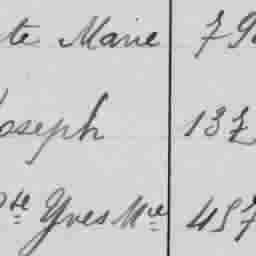 te Marie 79
Joseph 137
Pte Yves Mie 457